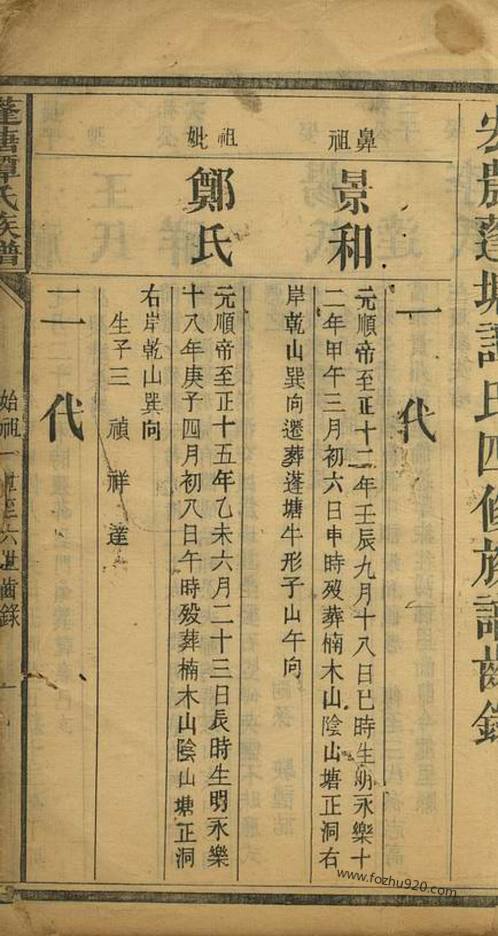 宏農蓬塘譚氏四修族譜齒錄
一代
鼻祖
景和
元順帝至正十二年壬辰九月十八日巳時生明永樂十
二年甲午三月初六日申時歿葬楠木山陰山塘正洞右
岸乾山巽向遷葬蓬塘牛形子山午向
祖妣
鄭氏
元順帝至正十五年乙未六月二十三日辰時生明永樂
十八年庚子四月初八日午時歿葬楠木山陰山塘正洞
右岸乾山巽向
生子三 禎 祥 達
二代
蓬塘譚氏族譜
始祖一世至六世齒錄
一
www.fozhu920.com